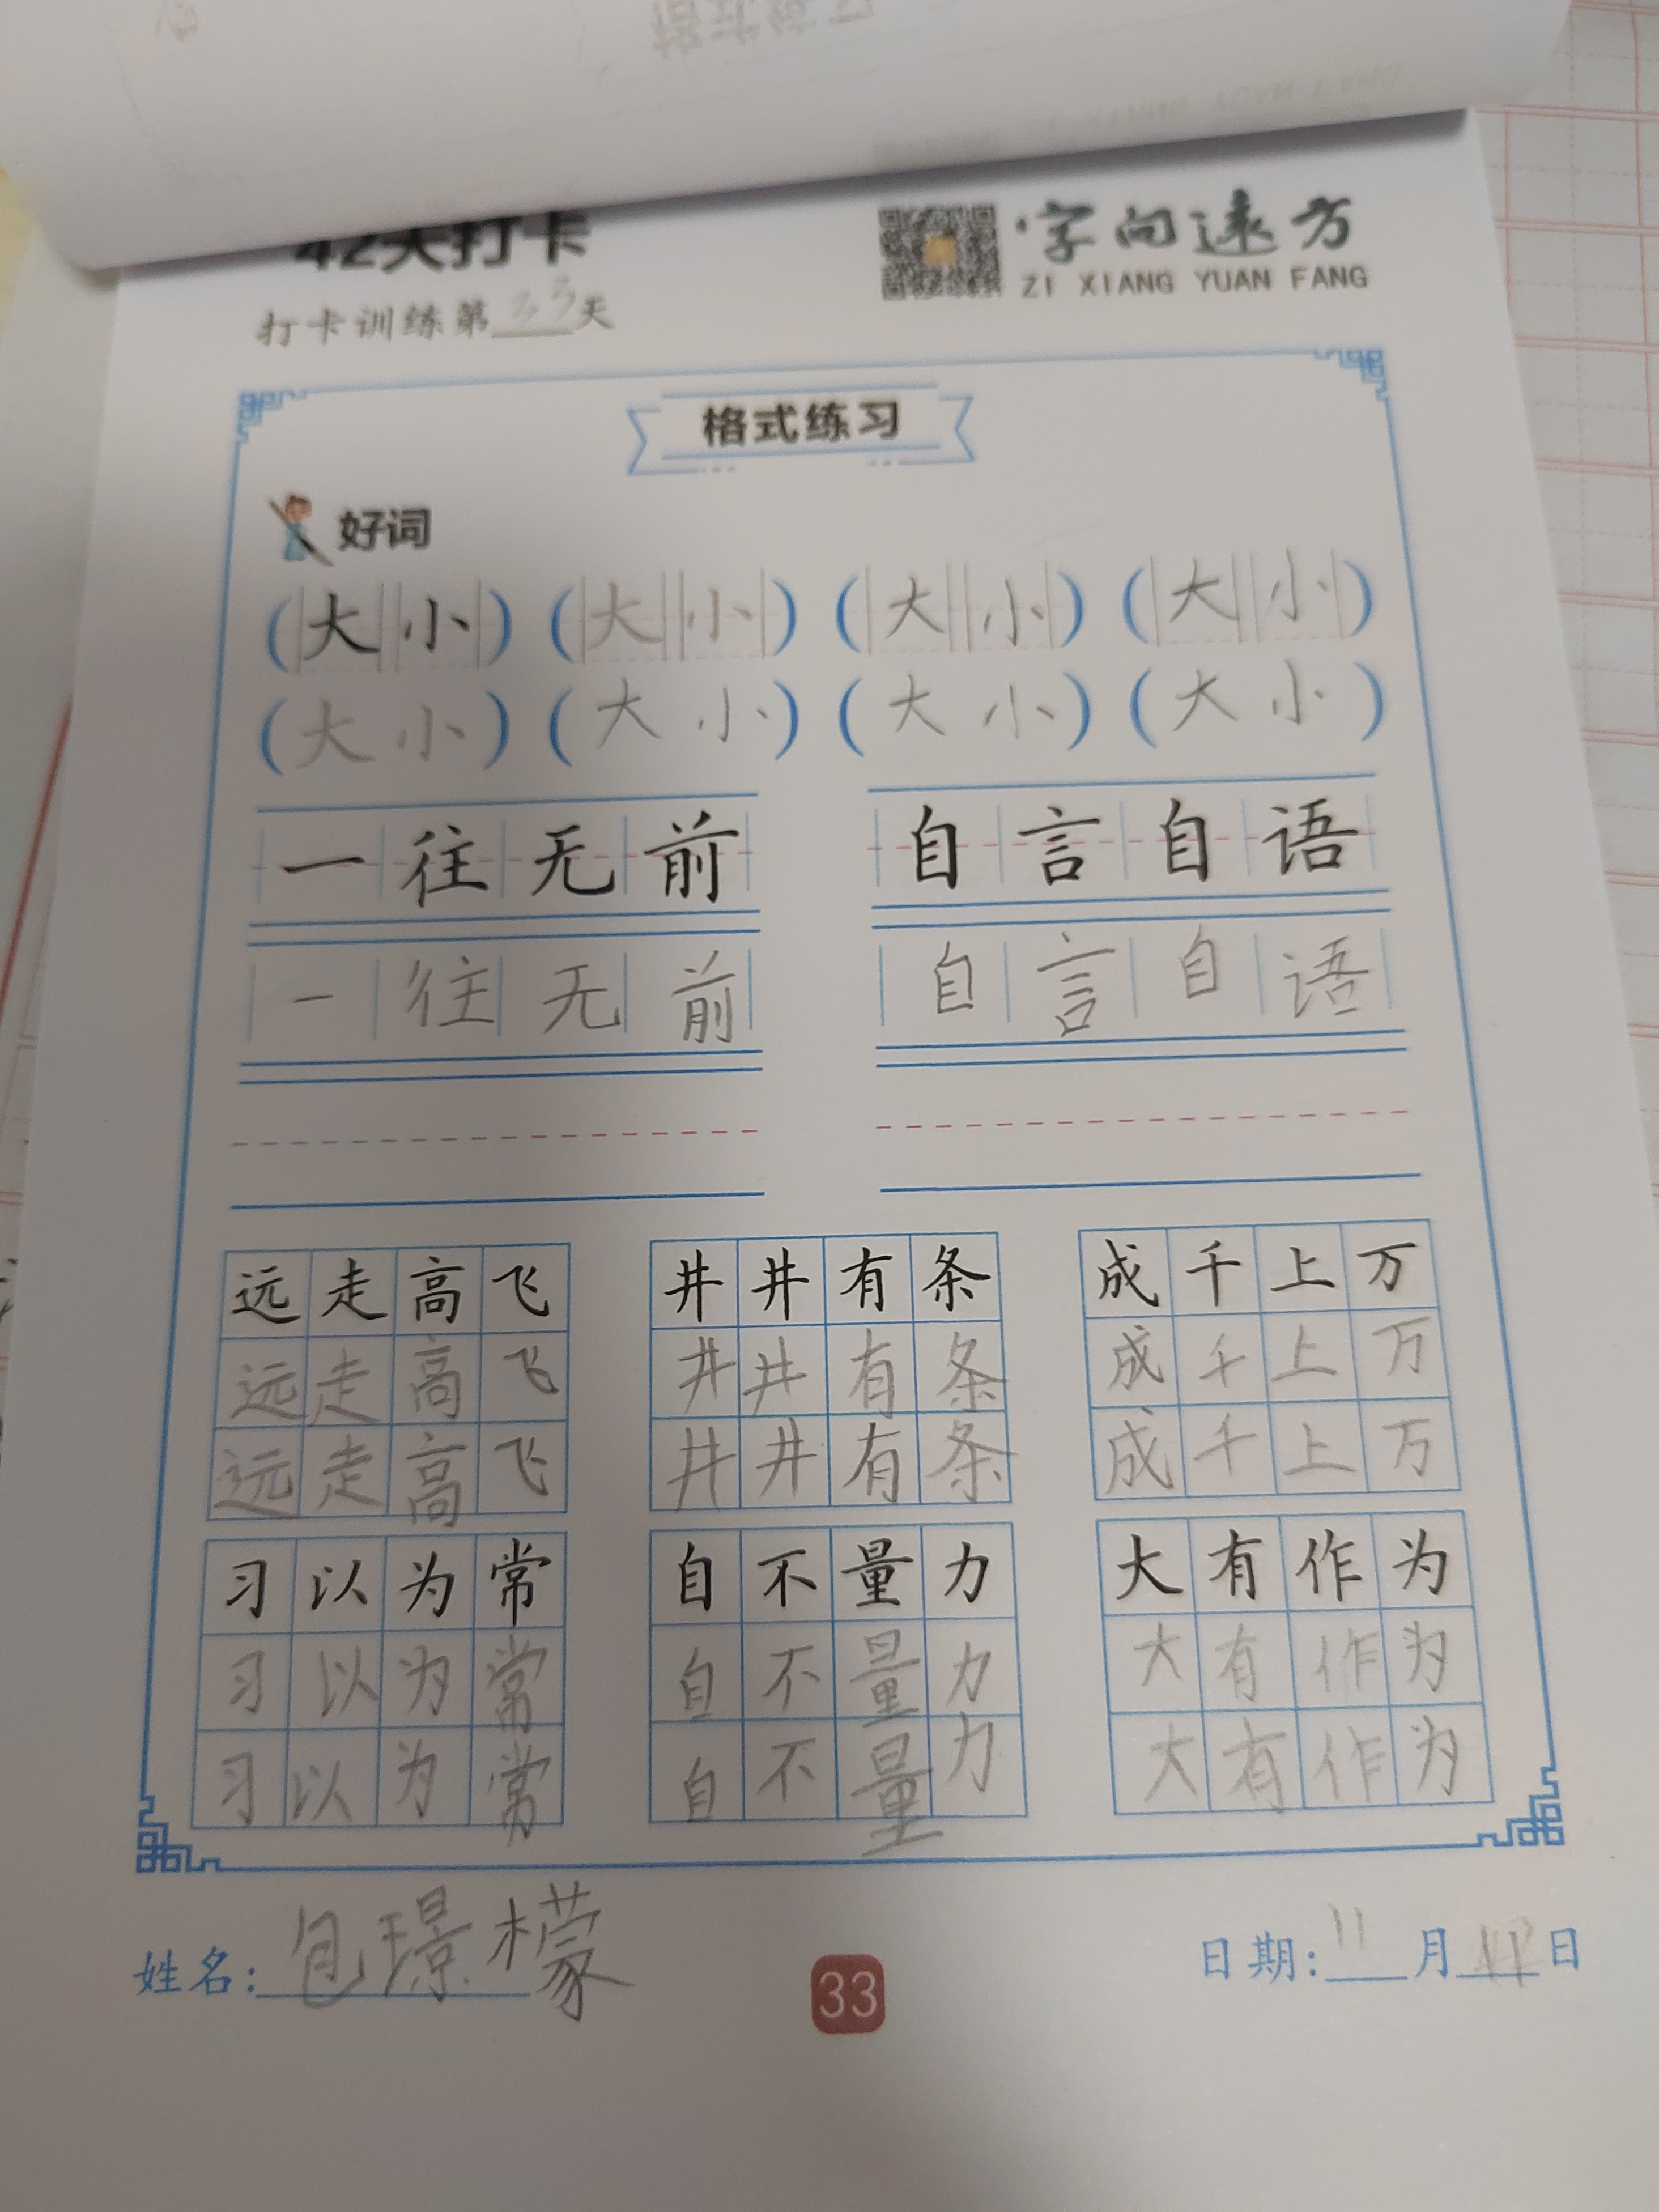 42天打卡
字向远方
ZI XIANG YUAN FANG
打卡训练第33天
格式练习
好词
(大小) (大小) (大小) (大小)
(大小) (大小) (大小) (大小)
一往无前 自言自语
一往无前 自言自语
远走高飞 井井有条 成千上万
远走高飞 井井有条 成千上万
远走高飞 井井有条 成千上万
习以为常 自不量力 大有作为
习以为常 自不量力 大有作为
习以为常 自不量力 大有作为
姓名:包璟檬 33 日期:11月 日